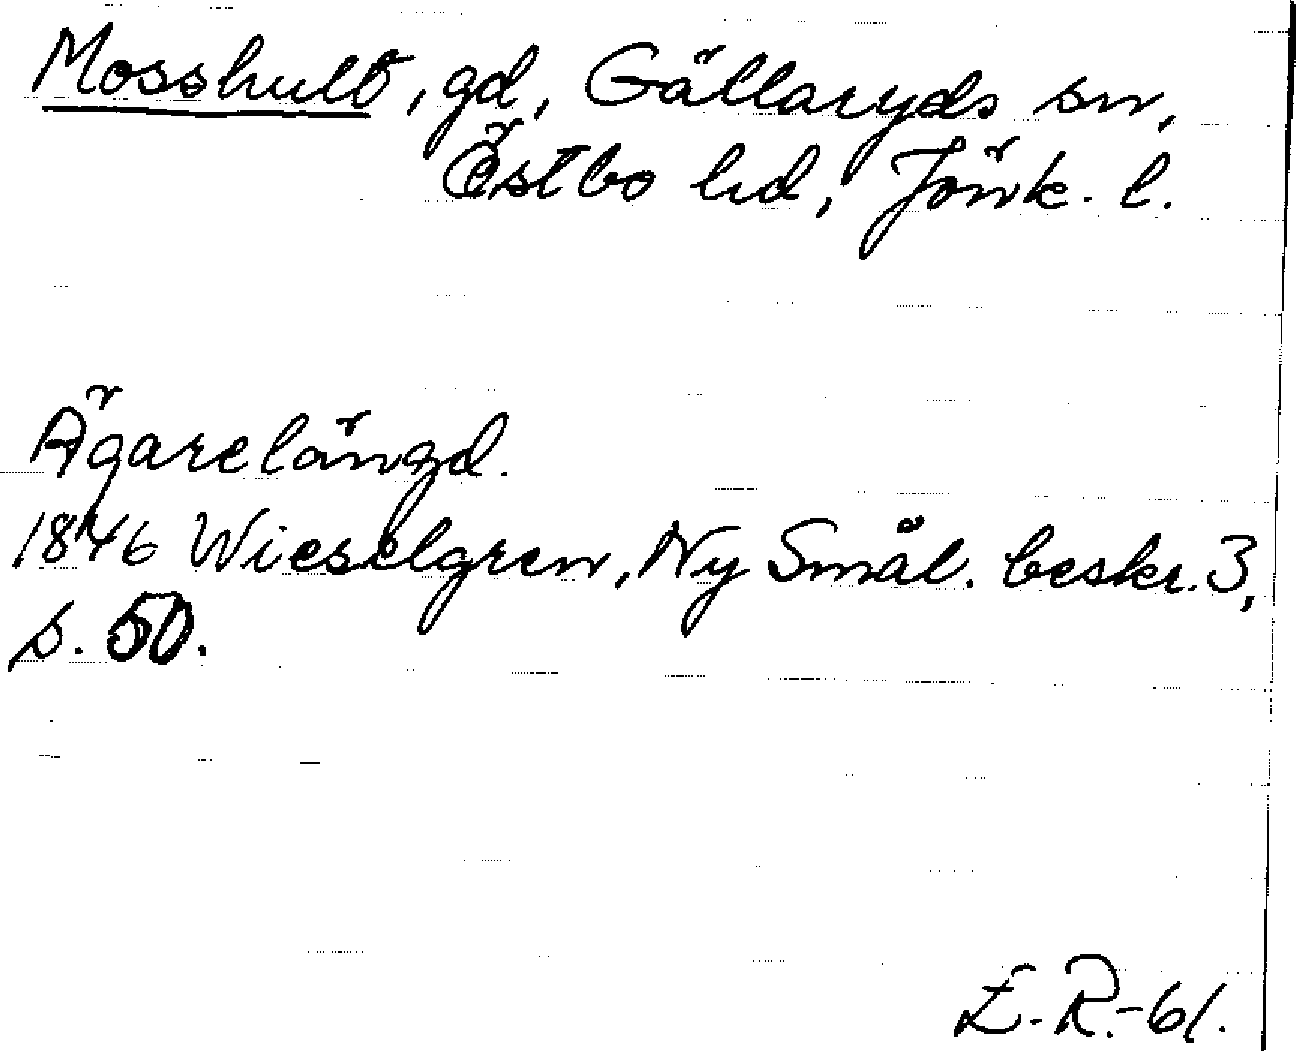 Mosshult, gd, Gällaryds sn,
Östbo hd, Jönk. l.
Ägarelängd.
1846 Wieselgren, Ny Smål. beskr. 3,
s. 50.
E. R. -61.